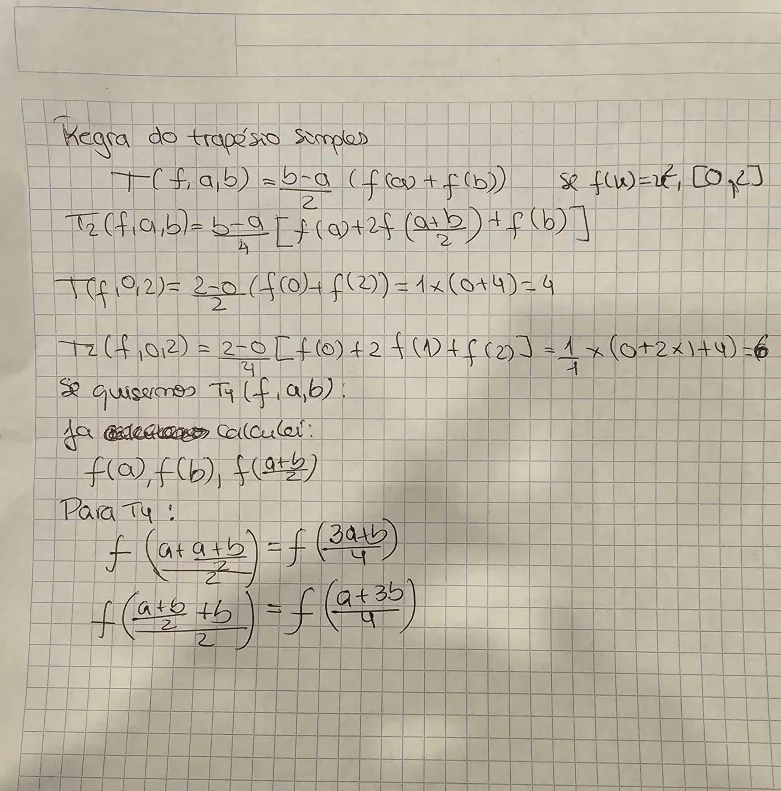 Regra do trapésio simples
T(f,a,b) = \frac{b-a}{2} (f(a) + f(b)) se f(x)=x², [0,2]
T₂(f,a,b) = \frac{b-a}{4} [f(a)+2f(\frac{a+b}{2})+f(b)]
T(f,0,2) = \frac{2-0}{2} (f(0)+f(2)) = 1×(0+4) = 4
T₂(f,0,2) = \frac{2-0}{4} [f(0)+2 f(1)+f(2)] = \frac{1}{1} × (0+2×1+4) = 6
Se quisermos T₄(f,a,b):
Ja calculei:
f(a), f(b), f(\frac{a+b}{2})
Para T₄:
f(\frac{a+\frac{a+b}{2}}{2}) = f(\frac{3a+b}{4})
f(\frac{\frac{a+b}{2}+b}{2}) = f(\frac{a+3b}{4})